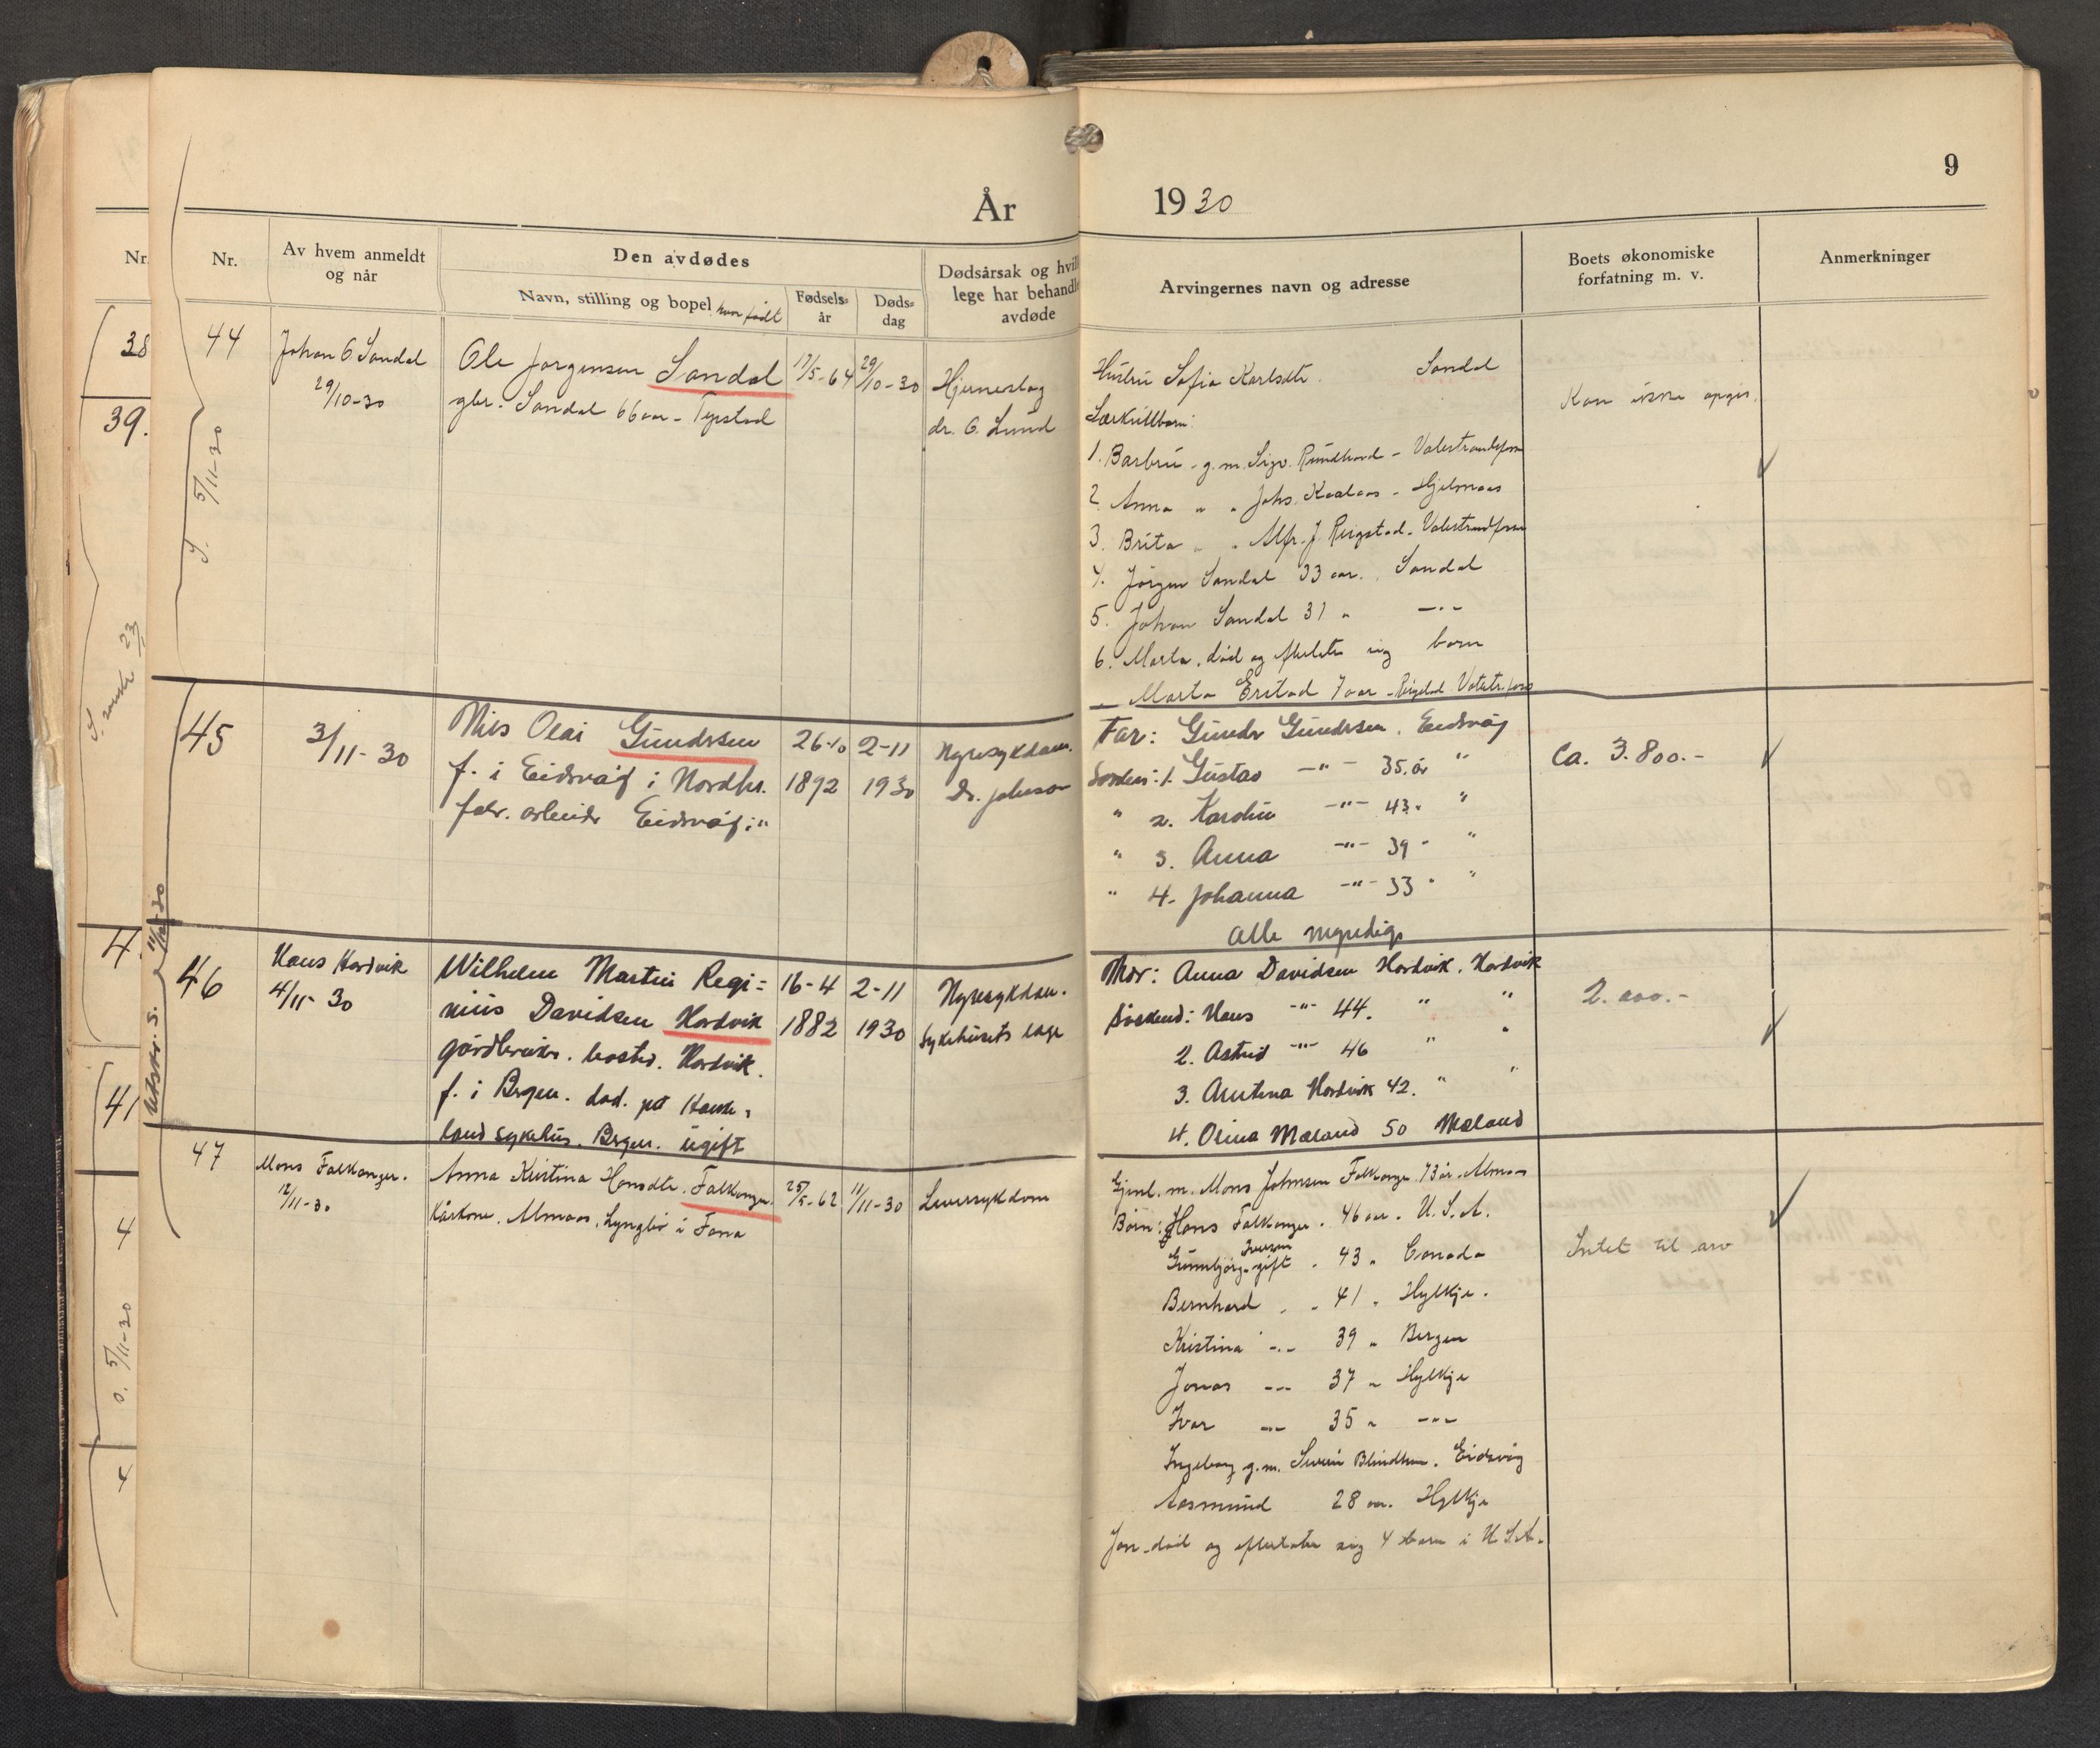 År 1930
9
Nr.
Av hvem anmeldt og når
Den avdødes
Navn, stilling og bopel hvor født
Fødsels-år
Døds-dag
Dødsårsak og hvil
lege har behandl
avdøde
Arvingernes navn og adresse
Boets økonomiske forfatning m. v.
Anmerkninger
Nr.
38
39.
4
41
4
5/11-30
4
44
Johan O. Sandal
29/10-30
Ole Jørgensen Sandal
gbr. Sandal 66 aar -
17/5-64
29/10-30
Hjerneslag
dr. O. Lund
Hustru Sofia Karlsdtr. Sandal
Særkullbarn:
1. Barbru - g.m. Sigv. Rundhovd - Valestrandsfossen
2. Anna " " Johs. Kaalaas - Hjelmaas
3. Brita " " Alfr. J. Reigstad - Valestrandfossen
4. Jørgen Sandal 33 aar. Sandal
5. Johan Sandal 31 " -"-
6. Marta, død og efterlater sig barn
- Marta Erstad 7 aar - Reigstad Valestr.foss
Kan ikke opgis.
5/11-30
45
3/11-30
Nils Olai Gundersen
f. i Eidsvåg i Nordhr.
fabr. arbeider Eidsvåg i "
26-10
1892
2-11
1930
Nyresykdom.
Dr. Johnson
Far: Gunder Gundersen. Eidsvåg
Søsken: 1. Gustav -"- 35. år "
" 2. Karoline -"- 43. "
" 3. Anna -"- 39 - "
" 4. Johanna -"- 33 " "
Alle myndige
Ca. 3.800.-
46
Hans Hordvik
4/11-30
Wilhelm Martin Regi=
nius Davidsen Hordvik
gårdbruker. bosted. Hordvik.
f. i Bergen. død. på Hauke=
land sykehus. Bergen. ugift
16-4
1882
2-11
1930
Nyresykdom.
sykehusets læge
Mor: Anna Davidsen Hordvik. Hordvik
Søskend: Hans -"- 44. " "
2. Astrid -"- 46 " "
3. Amtina Hordvik 42. " "
4. Orina Mæland 50 Mæland
2.000.-
47
Mons Falkanger.
12/11-30
Anna Kristina Hansdtr. Falkanger.
Kårkone. Almaas. Lyngbø i Fana
25/5-62
11/11-30
Leversykdom
Gjenl. m. Mons Johnsen Falkanger 73 år. Almaas
Børn: Hans Falkanger. 46 aar. U.S.A.
Gunnbjørg gift Iversen . 43 " Canada
Bernhard " " 41 " Hylkje.
Kristina -"- 39 " Bergen
Jonas -"- 37 " Hylkje
Ivar -"- 35 " -"-
Ingeborg g.m. Severin Blindheim. Eidsvåg
Aasmund 28 aar. Hylkje
Jon - død og efterlater sig 4 barn i U.S.A.
Intet til arv